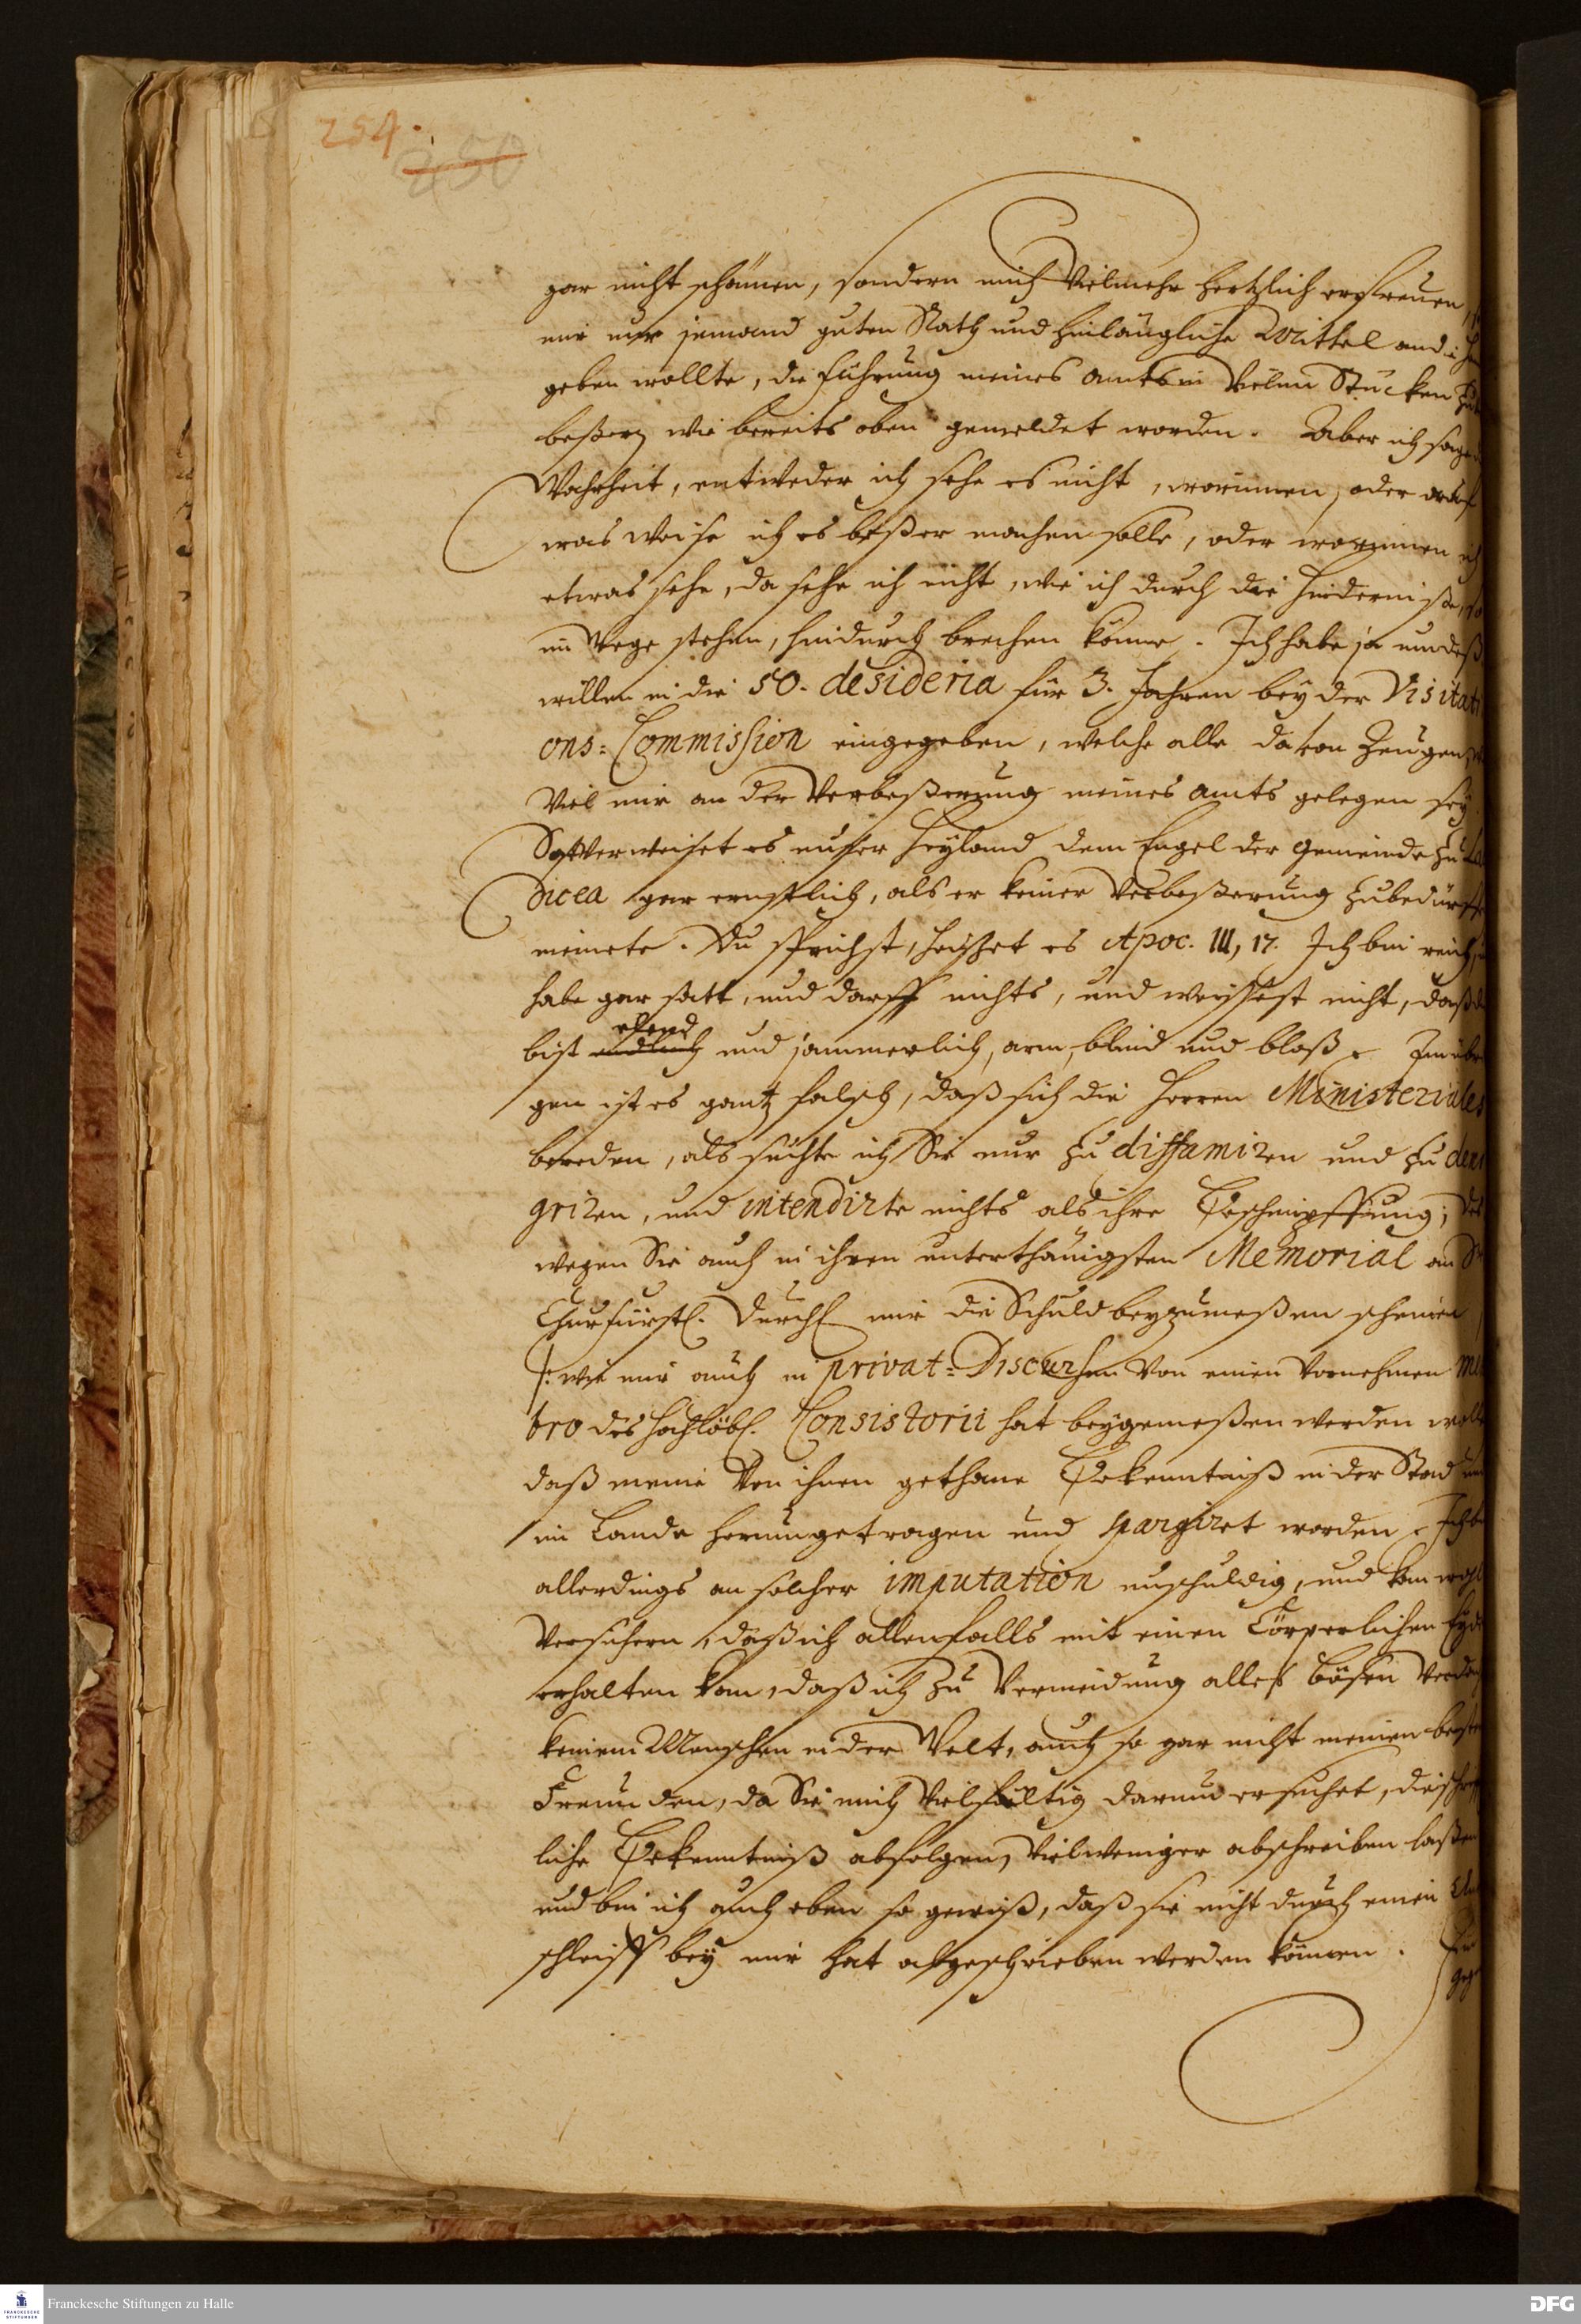 254.
250
gar nicht schämen, sondern mich Vielmehr hertzlich erfreuen,
mir nur jemand guten Rath und hinlängliche Mittel an die
geben wollte, die Führung meines Amts in Vielen Stücken zu
beßern wie bereits oben gemeldet worden. Aber ich sage
Wahrheit, entweder ich sehe es nicht, worinnen, oder auf
was Weise ich es beßer machen solle, oder worinnen ich
etwas sehe, da sehe ich nicht, wie ich durch die Hinderniße, so
im Wege stehen, hindurch brechen könne. Ich habe ja um deß
willen in die 50. desideria für 3. Jahren bey der Visitati
ons-Commission eingegeben, welche alle davon Zeugen,
Viel mir an der Verbeßerung meines Amts gelegen sey.
Sonst verweiset es unser Heyland dem Engel der Gemeinde zu Lao
dicea gar ernstlich, als er keiner Verbeßerung zubedürffen
meinete. Du sprichst, heißet es Apoc. III, 17. Ich bin reich,
habe gar satt, und darff nichts, und weyssest nicht, daß du
elend
bist endlich und jämmerlich, arm, blind und bloß. Im übri
gen ist es gantz falsch, daß sich die Herren Ministeriales
bereden, als suchte ich Sie nur zu diffamiren und zu deni
griren, und intendirte nichts als ihre Beschimpffung; des
wegen Sie auch in ihren unterthänigsten Memorial an Se
Churfürstl. Durchl. mir die Schuld beyzumeßen scheinen
/: wie mir auch in privat-Discursen Von einen Vornehmen Mem
bro des Hochlöbl. Consistorii hat beygemeßen werden wolle
daß meine Von ihnen gethane Bekenntniß in der Stad und
im Lande herumgetragen und spargiret worden. Ich bin
allerdings an solcher imputation unschuldig, und kan wohl
Versichern, daß ich allenfalls mit einen Cörperlichen Eyde
erhalten kan, daß ich zu Vermeidung alles bösen Verdachts
keinem Menschen in der Welt, auch so gar nicht meinen besten
Freunden, da Sie mich Vielfältig darum ersuchet, die schrifft
liche Bekenntniß abfolgen, Vielweniger abschreiben laßen
und bin ich auch eben so gewiß, daß sie nicht durch einen Un
schleiff bey mir hat abgeschrieben werden können.
Franckesche Stiftungen zu Halle
FRANCKESCHE STIFTUNGEN
DFG